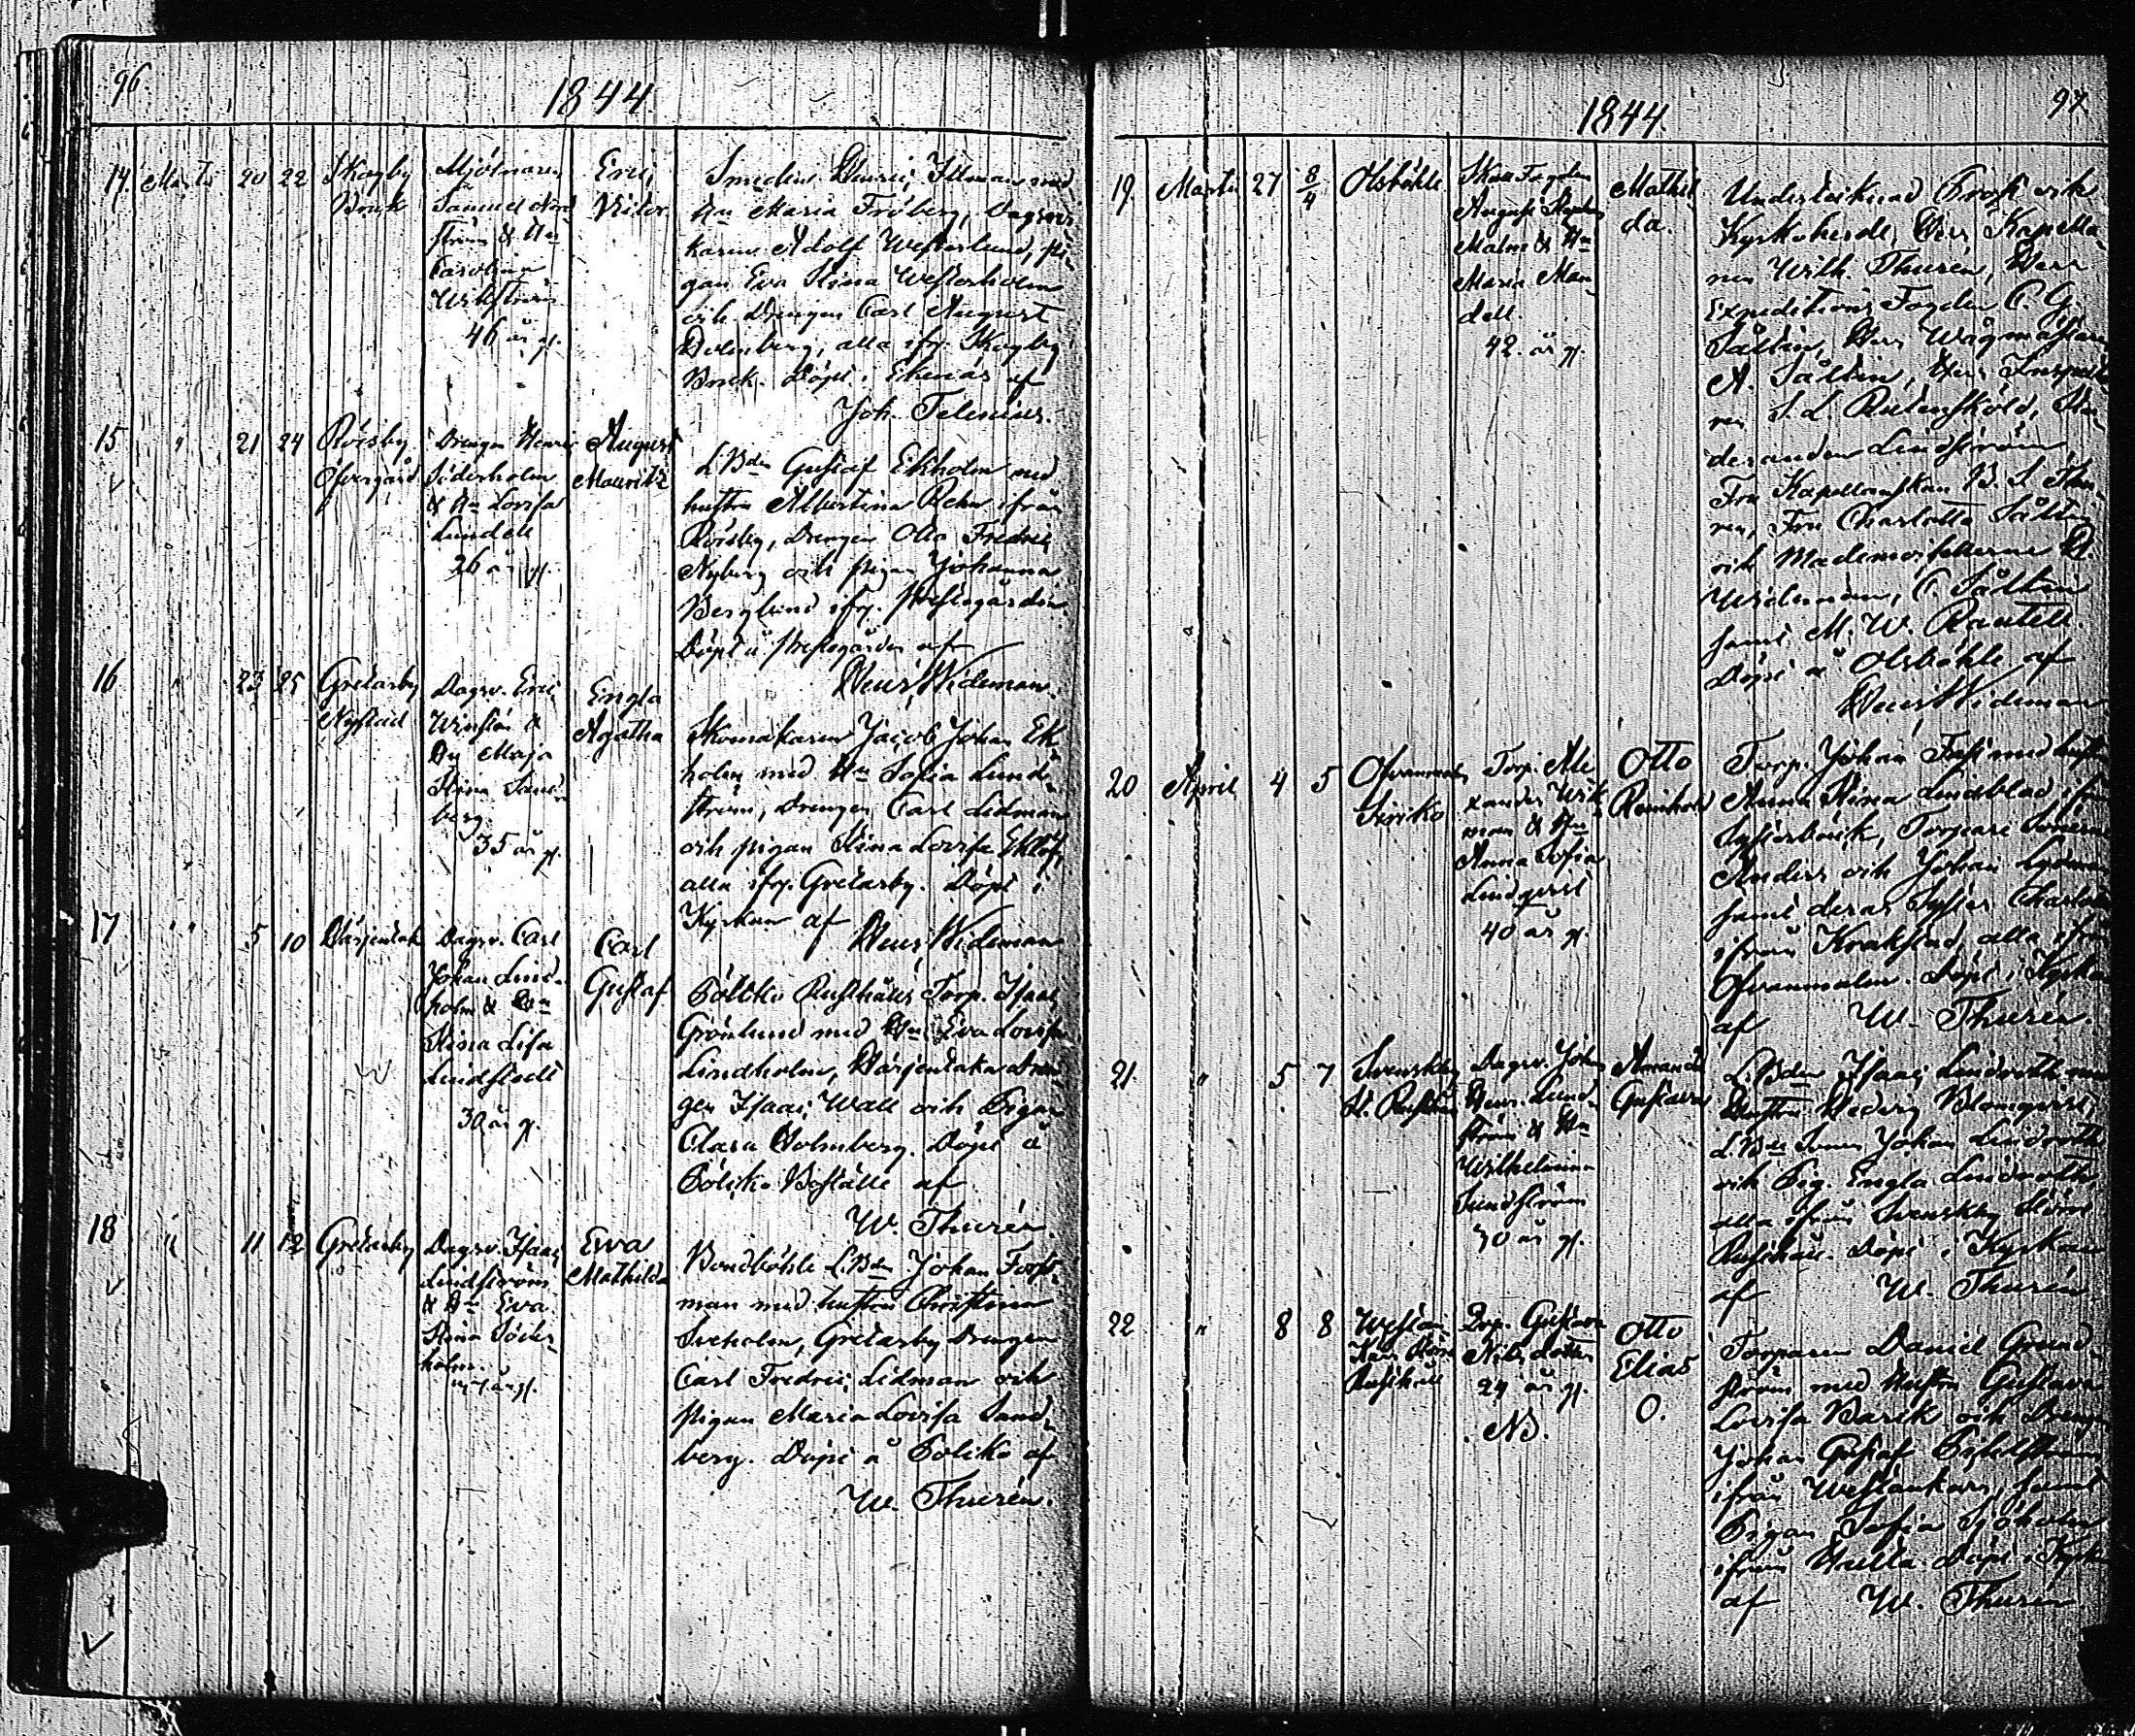 96.
1844
14. Martii 20 22 Skogby Bruk
Mjölnaren
Samuel Nord
ström & Hu
Carolina
Wikström
46 år gl.
Eric
Victor
Smeden Henric Illman med
Hu Maria Fröberg, Dagsver
karen Adolf Westerlund, pi
gan Eva Stina Westerholm
och drengen Carl August
Holmberg, alla ifr. Skogby
Bruk. Döpt i Ekenäs af
Joh. Telenius.
15 " 21 24
Öfvergård
Drengen Henric
Söderholm
& Hu Lovisa
Lundell
26 år gl.
August
Mauritz
LBdn Gustaf Ekholm med
hustru Albertina Rehn ifrån
drengen Otto Fredric
Nyberg och pigan Johanna
Berglund ifr. Prestegården.
Döpt å Prestegården af
Henr. Wideman.
16 " 23 25 Gretarby
Nystad
Dagsv. Eric
&
Hu Maja
Stina Sand
berg
35 år gl.
Engla
Agatha
Skomakaren Jacob Johan Ek
holm med Hu Sofia Lund
ström, drengen Carl Lidman
och pigan Stina Lovisa Eklöf,
alla ifr. Gretarby. Döpt i
Kyrkan af Henr. Wideman
17 " 5 10
Dagsv. Carl
Johan Lind
holm & Hu
Stina Lisa
Lindstedt
30 år gl.
Carl
Gustaf
Torp. Isaac
Grönlund med Hu Eva Lovisa
Lindholm, Dren
gen Isaac Wall och Pigan
Clara Holmberg. Döpt å
Boställe af
W. Thurén
18 " 11 12 Gretarby
Dagsv. Isaac
Lindström
& Hu Eva
Stina Söder
holm.
år gl.
Eva
Mathilda
Bondböhle LBdn Johan Forss
man med hustru Christina
Gretarby Drengen
Carl Fredric Lidman och
pigan Maria Lovisa Sand
berg. Döpt å af
W. Thurén.
97.
1844.
19. Martii 27 8/4 Olsböhle
August
Malm & Hu
Maria Man
dell.
42 år gl.
Mathil
da.
Undertecknad Prost och
Kyrkoherde, Herr Kapella
nen Wilh. Thurén, Herr
Expeditions Fogden C. G.
Sältin, Herr Wågmästaren
A. Sältin, Herr
Lindström
Fru Kapellanskan B. S. Thu
rén, Fru Charlotta Sältin
och Mademoisellerne
Wideman, C. Sältin
samt M. W. Rantell.
Döpt å Olsböhle af
Henr. Wideman
20 April 4 5
Torp. Ale
xander Wik
man & Hu
Anna Sofia
Lindqvist
40 år gl.
Otto
Reinhold
Torp. Johan med hustru
Anna Stina Lindblad
Torpare Sönerna
Anders och Johan
samt deras Syster Charlotta
ifrån alla ifrån
Döpt i Kyrkan
af W. Thurén.
21. " 5 7 Svenskby
Dagsv. Johan
Henr. Lund
ström & Hu
Wilhelmina
Sundström
30 år gl.
Amanda
Gustava
LBdn Isaac Lindroth med
Hustru Hedvig Blomqvist,
LBde Sonen Johan Lindroth
och Pig. Engla Lindroth,
alla ifrån Svenskby Störe
Rusthåll. Döpt i Kyrkan
af W. Thurén
22 " 8 8
Rusthåll
Gustava
Nils dotter
24 år gl.
NB.
Otto
Elias
O.
Torparen Daniel Grund
ström med Hustru Gustava
Lovisa och Drengen
Johan Gustaf
ifrån samt
Pigan Sofia Sjöholm
ifrån Döpt i Kyrkan
af W. Thurén